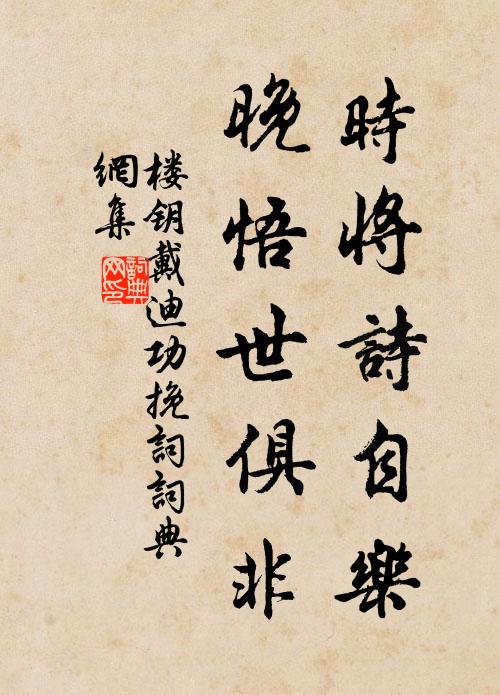 時將詩自樂
晚悟世俱非
楼钥戴迪功挽詞詞典
網集
詞典網印